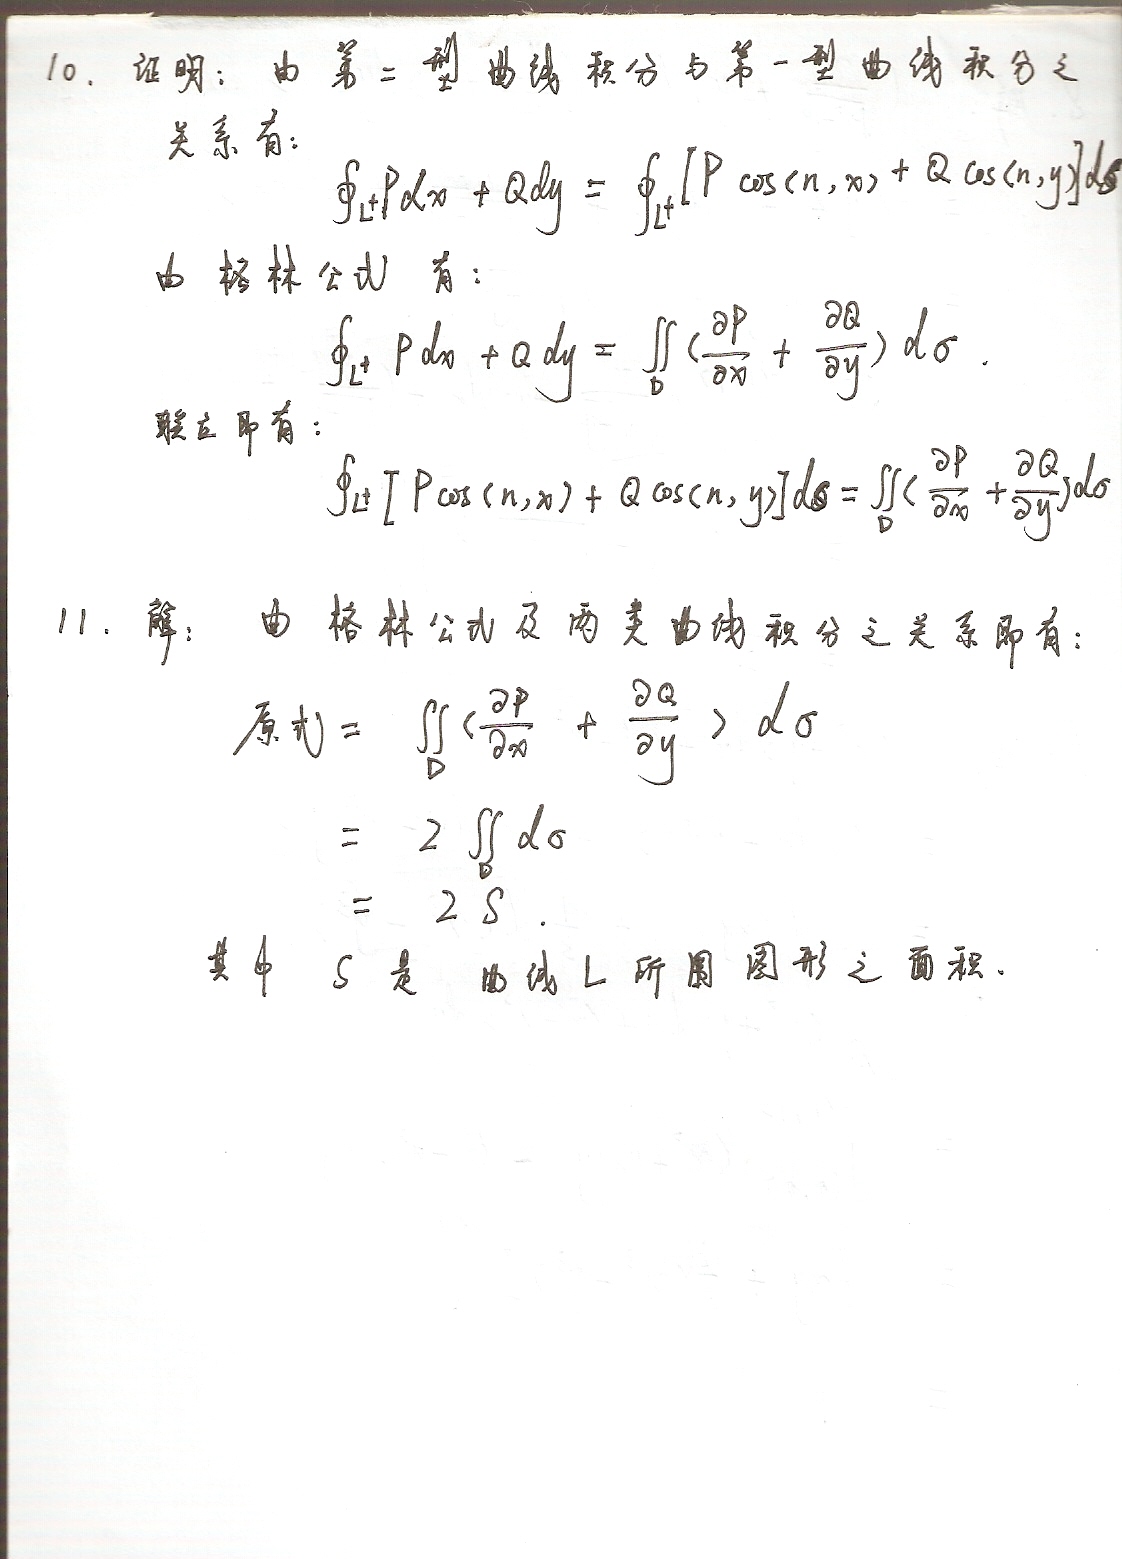 10. 证明: 由第二型曲线积分与第一型曲线积分之
关系有:
∮_{L⁺} Pdx + Qdy = ∮_{L⁺} [P cos(n,x) + Q cos(n,y)]ds
由格林公式 有:
∮_{L⁺} Pdx + Qdy = ∬_D (∂P/∂x + ∂Q/∂y) dσ.
联立即有:
∮_{L⁺} [P cos(n,x) + Q cos(n,y)]ds = ∬_D (∂P/∂x + ∂Q/∂y)dσ
11. 解: 由格林公式及两类曲线积分之关系即有:
原式 = ∬_D (∂P/∂x + ∂Q/∂y) dσ
= 2 ∬_D dσ
= 2 S.
其中 S是 曲线L所围图形之面积.